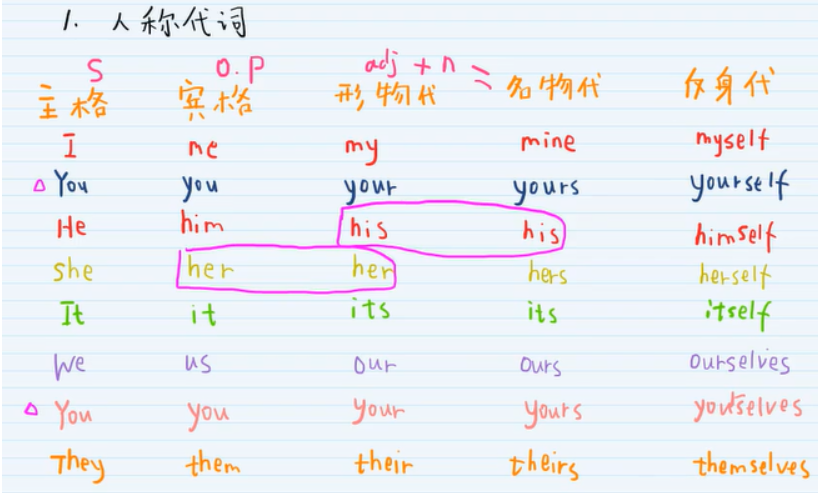 1. 人称代词
S O.P adj + n =
主格 宾格 形物代 名物代 反身代
I me my mine myself
△ You you your yours yourself
He him his his himself
she her her hers herself
It it its its itself
We us our ours ourselves
△ You you your yours yourselves
They them their theirs themselves